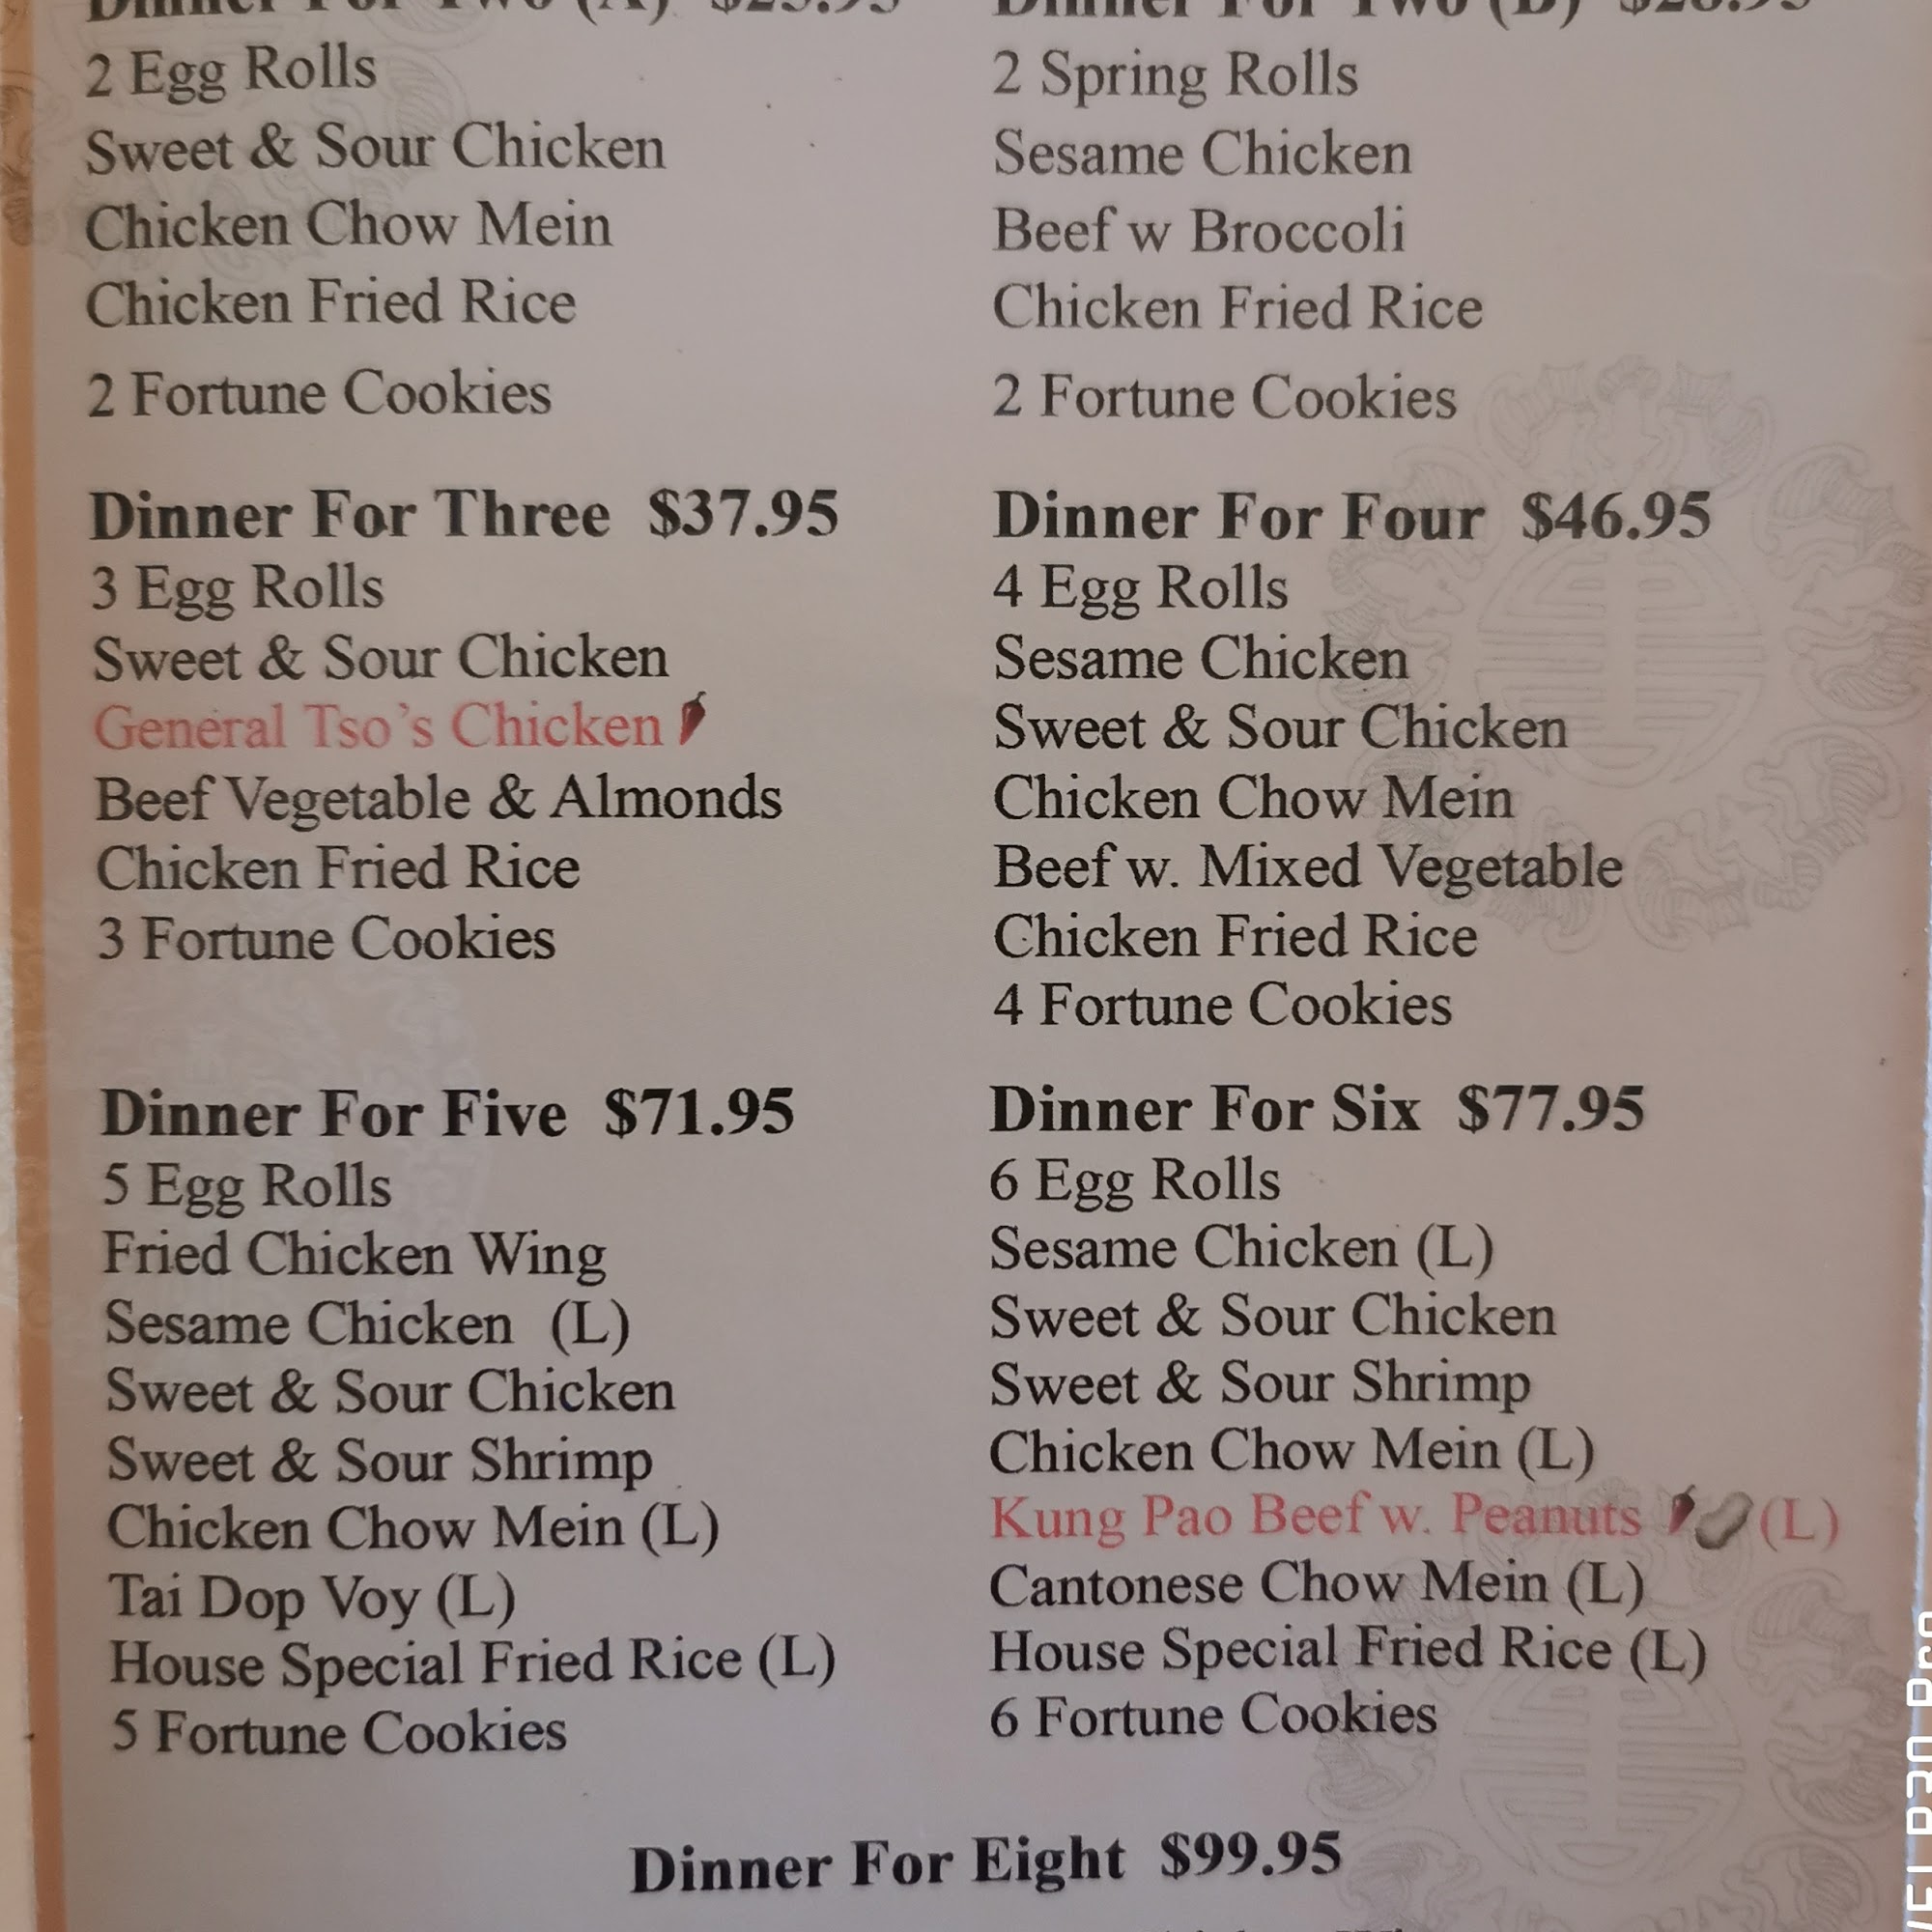 Dinner For Two (A) $25.95
Dinner For Two (B) $28.95
2 Egg Rolls
Sweet & Sour Chicken
Chicken Chow Mein
Chicken Fried Rice
2 Fortune Cookies
2 Spring Rolls
Sesame Chicken
Beef w Broccoli
Chicken Fried Rice
2 Fortune Cookies
Dinner For Three $37.95
3 Egg Rolls
Sweet & Sour Chicken
General Tso's Chicken
Beef Vegetable & Almonds
Chicken Fried Rice
3 Fortune Cookies
Dinner For Four $46.95
4 Egg Rolls
Sesame Chicken
Sweet & Sour Chicken
Chicken Chow Mein
Beef w. Mixed Vegetable
Chicken Fried Rice
4 Fortune Cookies
Dinner For Five $71.95
5 Egg Rolls
Fried Chicken Wing
Sesame Chicken (L)
Sweet & Sour Chicken
Sweet & Sour Shrimp
Chicken Chow Mein (L)
Tai Dop Voy (L)
House Special Fried Rice (L)
5 Fortune Cookies
Dinner For Six $77.95
6 Egg Rolls
Sesame Chicken (L)
Sweet & Sour Chicken
Sweet & Sour Shrimp
Chicken Chow Mein (L)
Kung Pao Beef w. Peanuts (L)
Cantonese Chow Mein (L)
House Special Fried Rice (L)
6 Fortune Cookies
Dinner For Eight $99.95